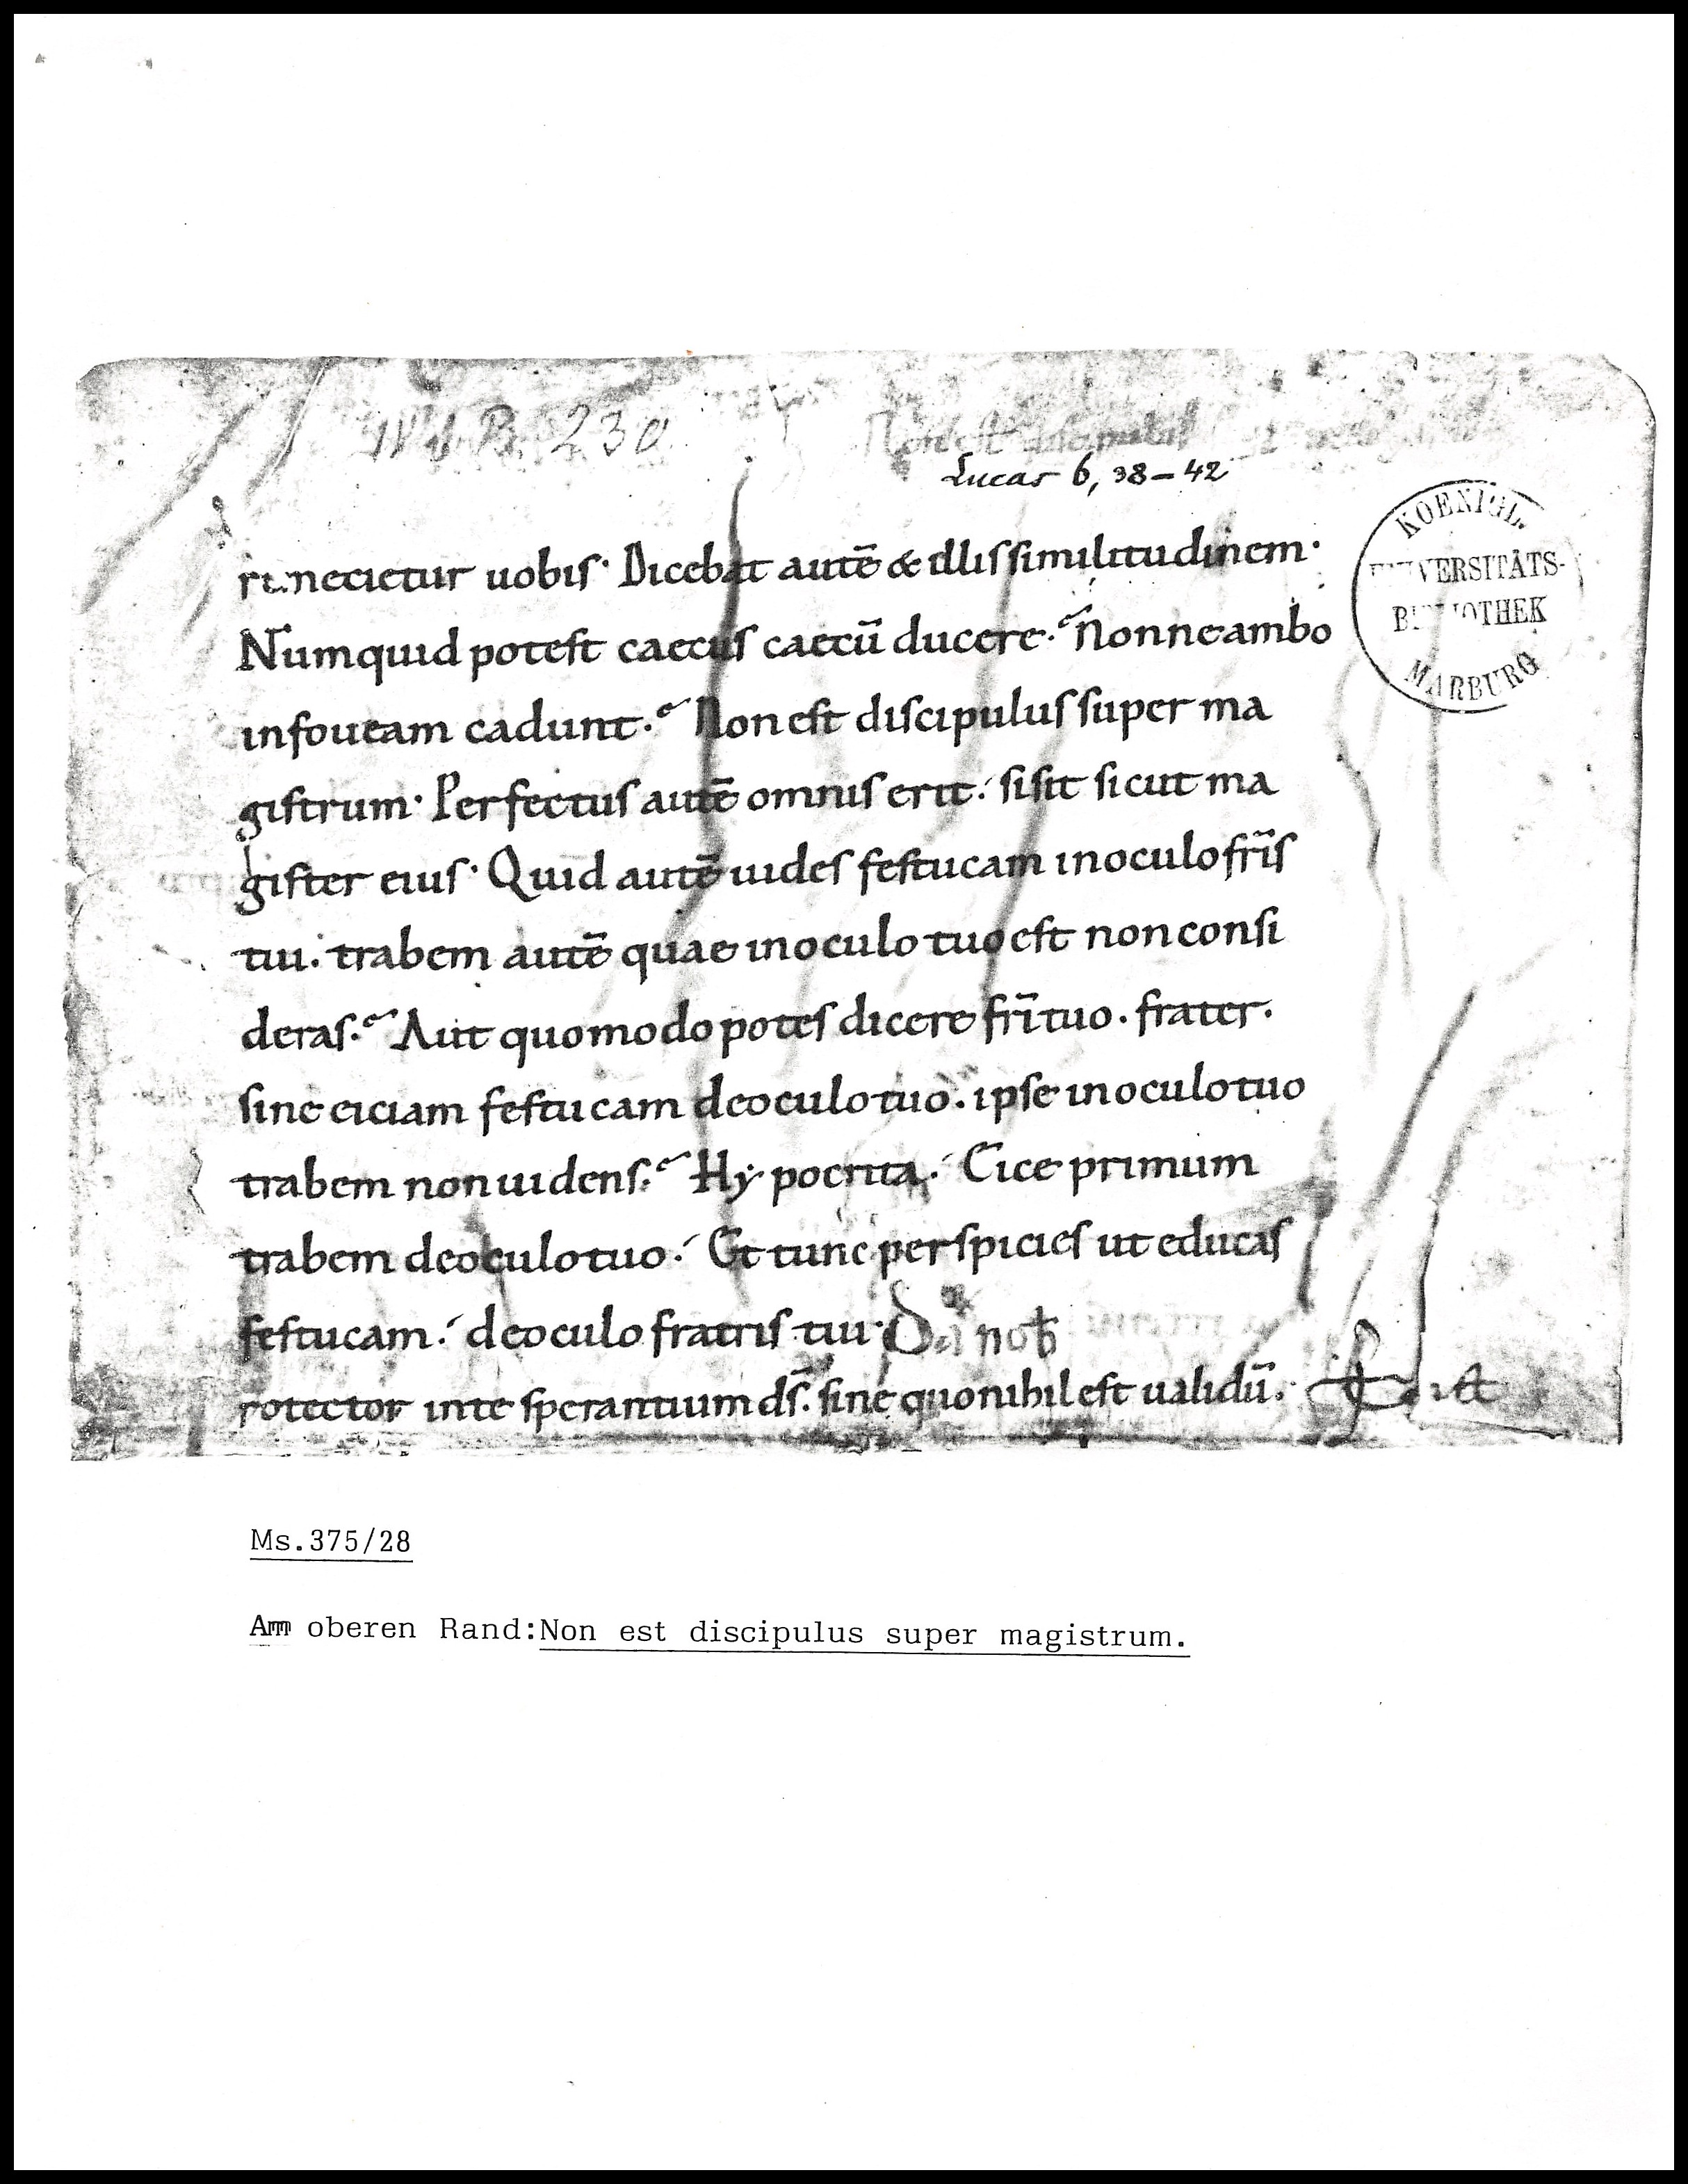 230
Non est discipulus
Lucas 6, 38-42
KOENIGL.
UNIVERSITÄTS-
BIBLIOTHEK
MARBURG
remecietur uobiſ· Dicebat autē & illiſ ſimilitudinem·
Numquid poteſt caecuſ caecū ducere· Nonne ambo
infoueam cadunt· Non eſt diſcipuluſ ſuper ma
giſtrum· Perfectuſ autē omniſ erit: ſiſit ſicut ma
giſter eiuſ· Quid autē uideſ feſtucam inoculo fr̄iſ
tui: trabem autē quae inoculo tuo eſt non conſi
deraſ· Aut quomodo poteſ dicere fr̄i tuo· frater·
ſine eiciam feſtucam deoculo tuo· ipſe inoculo tuo
trabem non uidenſ· Hypocrita: Eice primum
trabem deoculo tuo: Et tunc perſpicieſ ut educaſ
feſtucam: deoculo fratriſ tui· Da nob
rotector inte ſperantium dſ̄· ſine quo nihil eſt ualidū·
Ms.375/28
Am oberen Rand:Non est discipulus super magistrum.